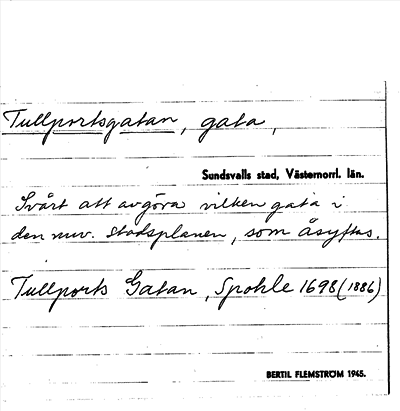 Tullportsgatan, gata,
Sundsvalls stad, Västernorrl. län.
Svårt att avgöra vilken gata i
den nuv. stadsplanen, som åsyftas.
Tullports Gatan, Spohle 1698 (1886)
BERTIL FLEMSTRÖM 1965.